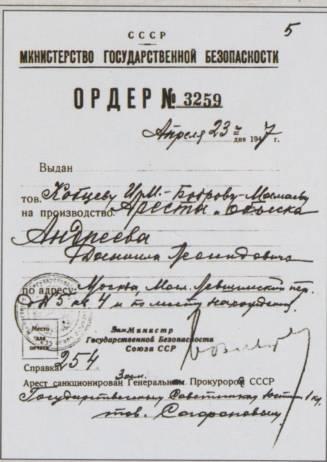 5
СССР
МИНИСТЕРСТВО ГОСУДАРСТВЕННОЙ БЕЗОПАСНОСТИ
ОРДЕР № 3259
Апреля 23 дня 1947 г.
Выдан
тов. Кобцеву
на производство Ареста и Обыска
Андреева
Даниила Леонидовича
по адресу: Москва, Мал. Левшинский пер.
д № 5 кв 4 и по месту нахождения
Место для печати
Зам Министр
Государственной Безопасности
Союза ССР
Справка 254
Зам.
Арест санкционирован Генеральным Прокурором СССР
Государственным Советником Юстиции
тов. Сафоновым